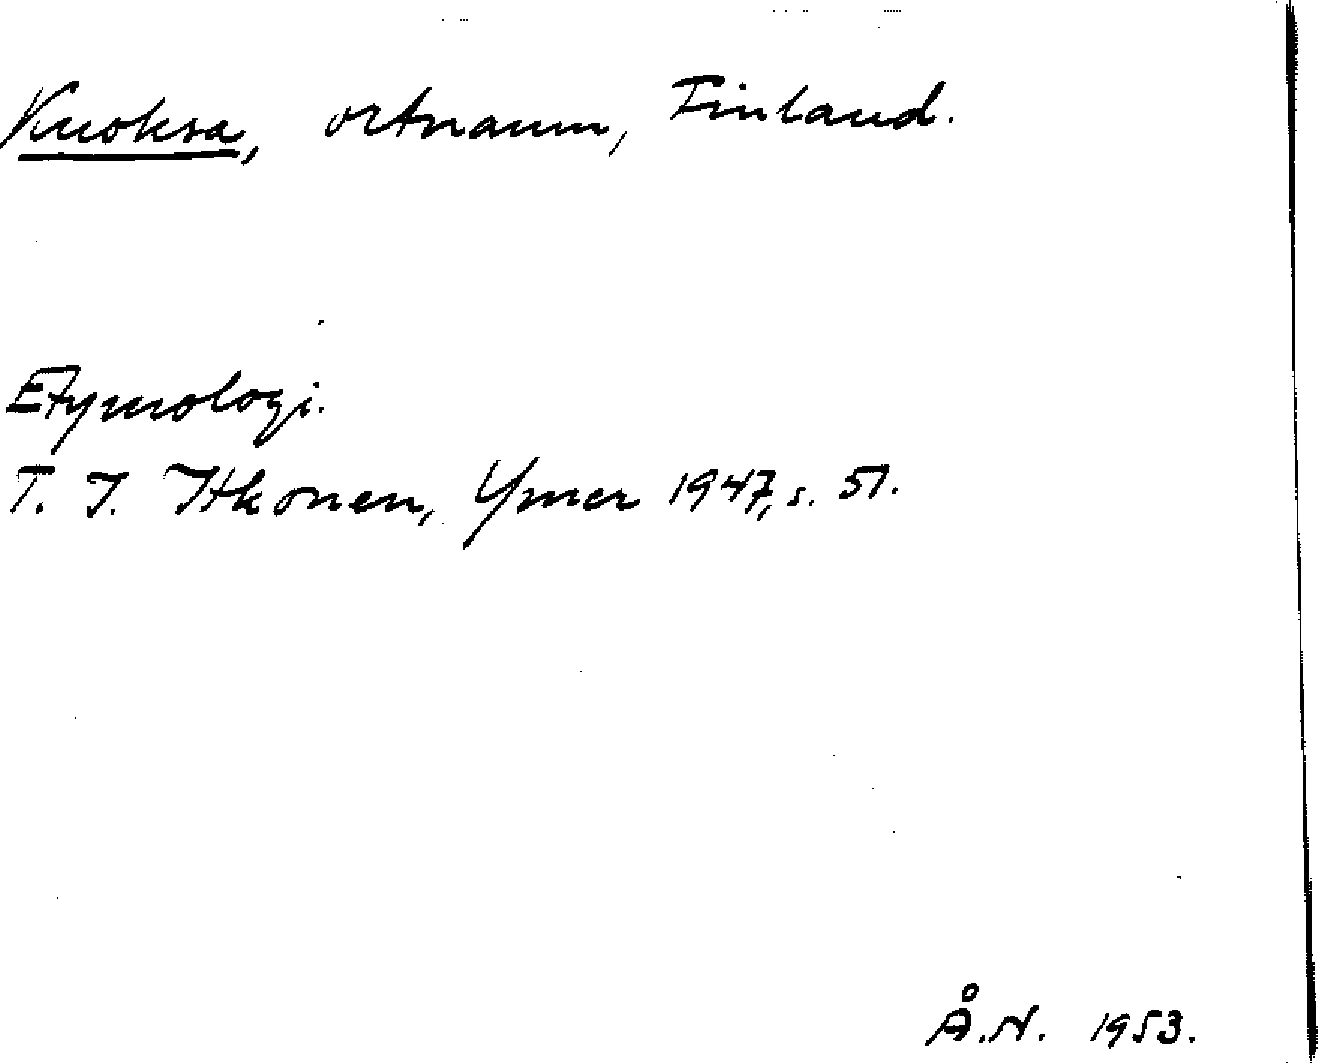 Kuoksa, ortnamn, Finland.
Etymologi.
T. I. Itkonen, Ymer 1947, s. 51.
Å.N. 1953.